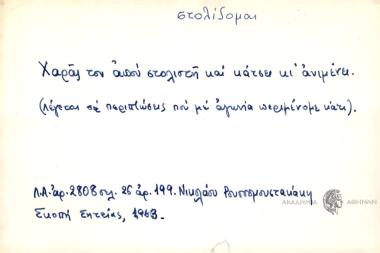 στολίζομαι
Χαρᾶς τον ἁποὺ στολιστῆ καὶ κάτσει κι' ἀνιμένει.
(Λέγεται σὲ περιπτώσεις ποὺ μὲ ἀγωνία περιμένομε κάτι).
Λ.Α. ἀρ. 2808 σελ. 26 ἀρ. 199. Νικολάου Ρουσσομουστακάκη
Σκοπὴ Σητείας, 1963.
ΑΚΑΔΗΜΙΑ ΑΘΗΝΩΝ